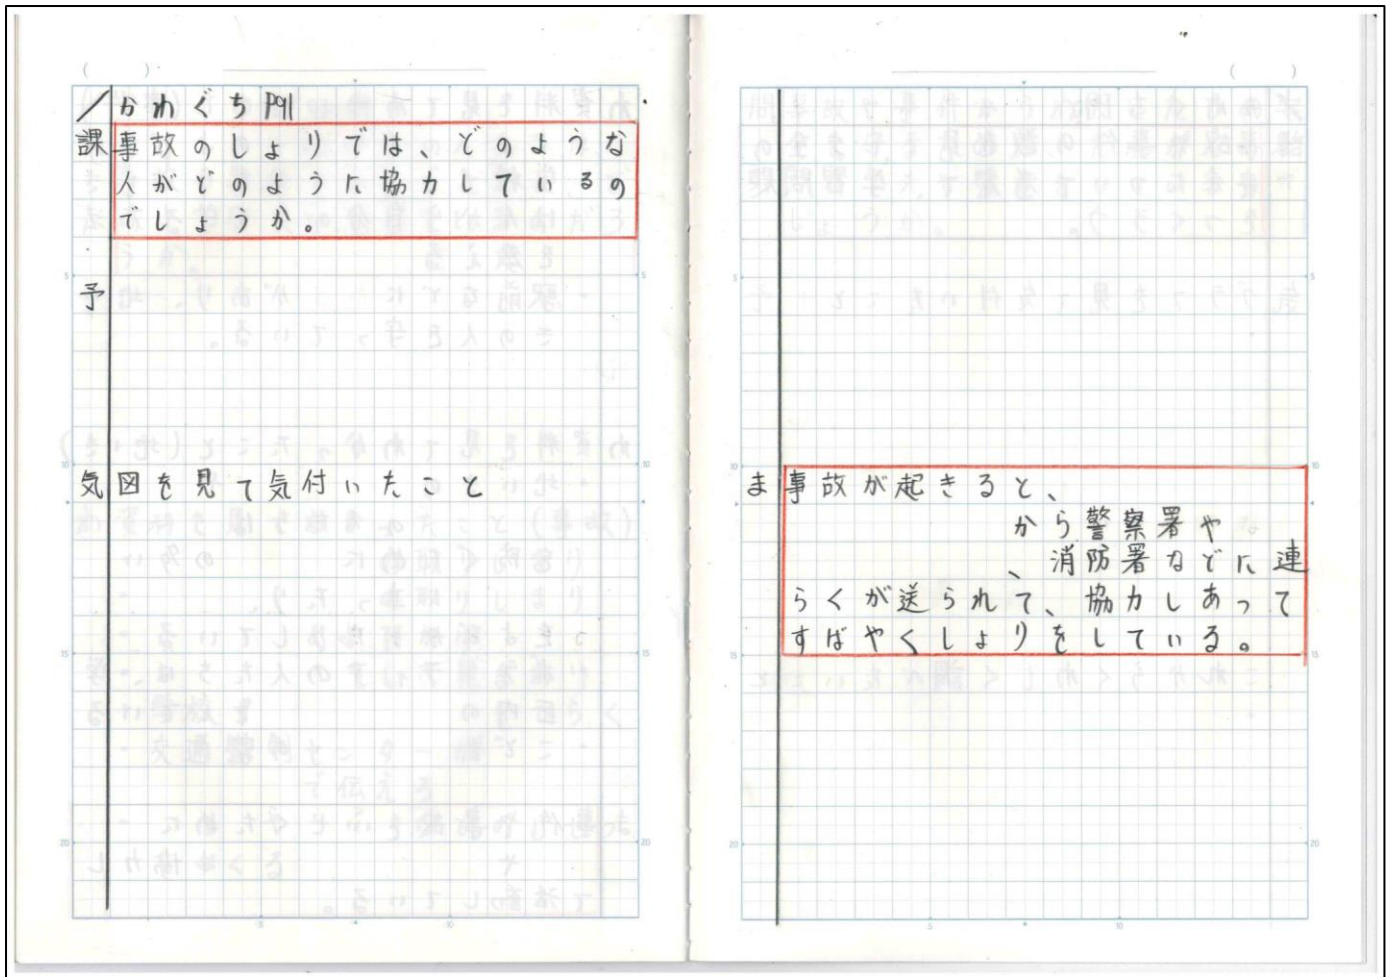 / かわぐち P91
課 事故のしょりでは、どのような
人がどのように協力しているの
でしょうか。
予
気 図を見て気付いたこと
ま 事故が起きると、
から警察署や
、消防署などに連
らくが送られて、協力しあって
すばやくしょりをしている。